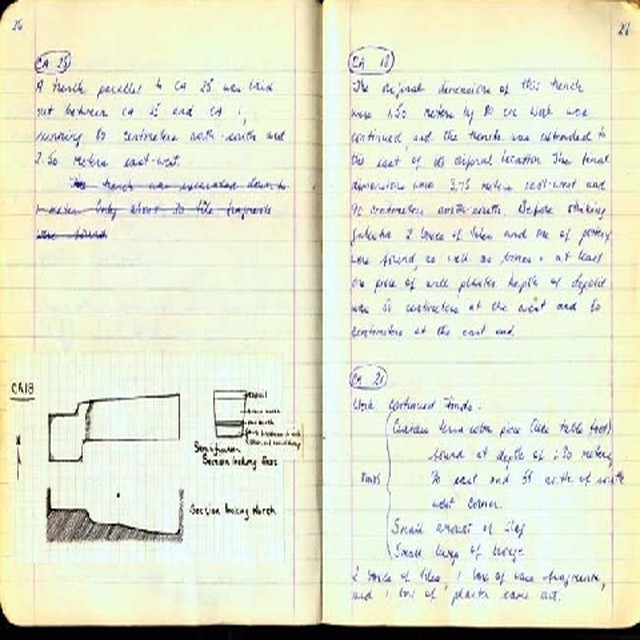 26
CA 25
A trench parallel to CA 25 was laid
out between CA 25 and CA
running 80 centimeters north-south and
2.50 meters east-west.
The trench was excavated down to
1 meter. Only about 30 tile fragments
were found
CA 18
Section looking East
Section looking North
CA 18
The original dimensions of this trench
were 1.50 meters by 80 cm. Work was
continued and the trench was extended to
the east of its original location. The final
dimensions were 3.75 meters east-west and
90 centimeters north-south. Before striking
2 boxes of tiles and one of pottery
were found, as well as bones + at least
one piece of wall plaster. Depth of deposit
was 50 centimeters at the west and 80
centimeters at the east end.
CA 21
Work continued. Finds:
Curious terra cotta piece (like table foot)
found at depth of 1.30 meters
70 east and 55 north of south
west corner.
Finds
Small amount of slag
Small lump of bronze
2 boxes of tiles, 1 box of vase fragments,
and 1 box of plaster came out.